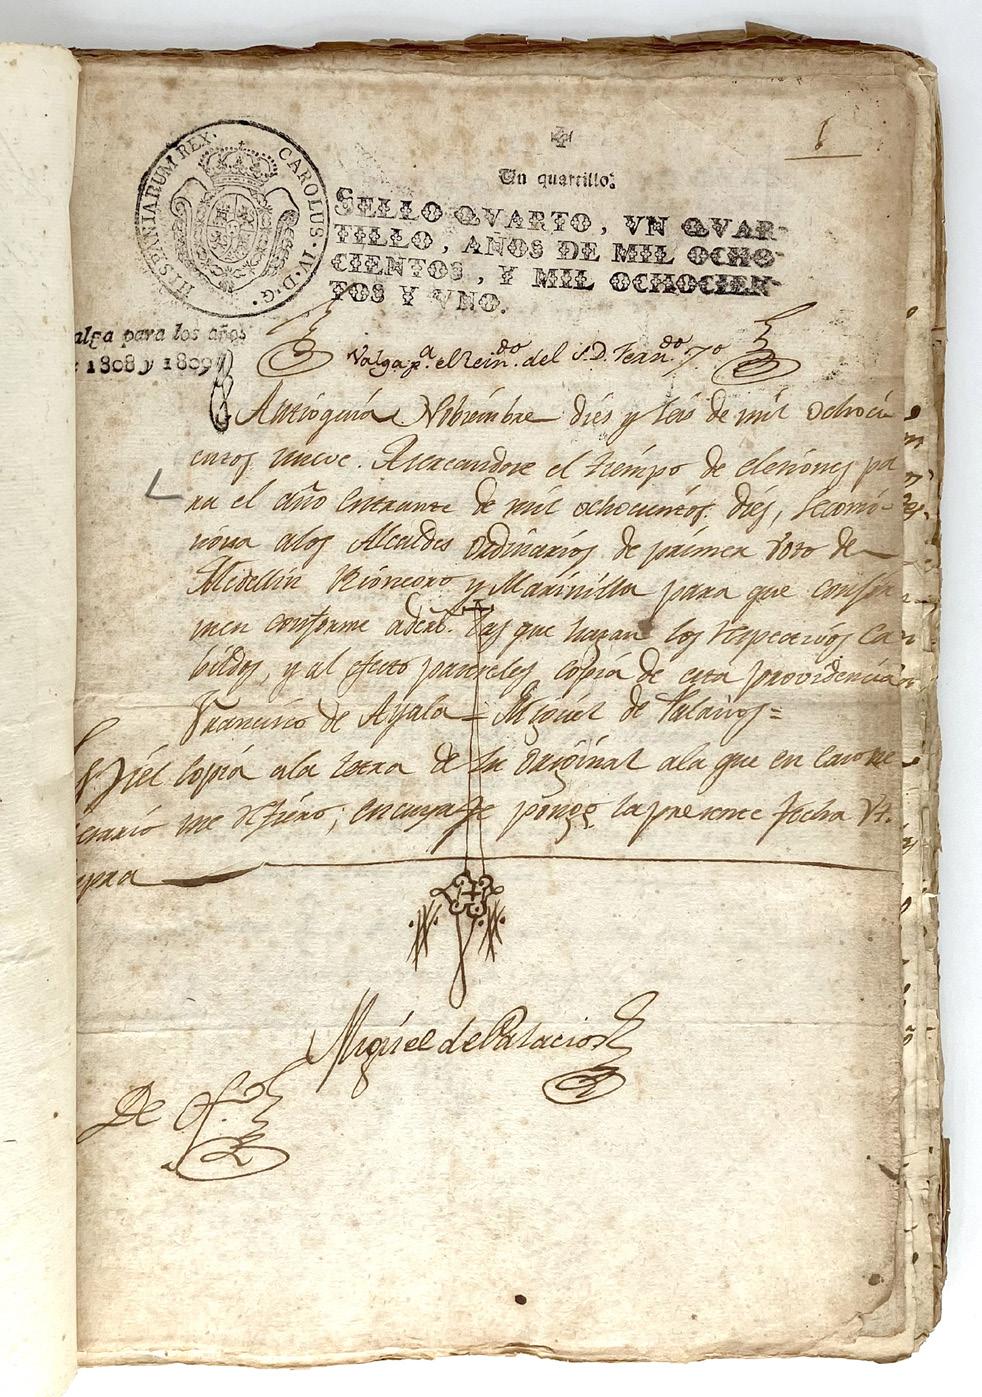 1
HISPANIARUM REX. CAROLUS·IV·D·G·
Un quartillo.
SELLO QVARTO, VN QVAR-
TILLO, AÑOS DE MIL OCHO-
CIENTOS, Y MIL OCHOCIEN-
TOS Y VNO.
alga para los años
1808 y 1809
Valga pª. el Reindo. del S. D. Ferndo. 7º
Antioquia Nobiembre dies y seis de mil ochoci
entos nueve. Acercandose el tiempo de elesiones pa
ra el año entrante de mil ochocientos dies, se comi-
siona alos Alcaldes Ordinarios de primer voto de
Medellin Rionegro y Marinilla para que confir
men conforme a dcho. las que hagan los respectivos Ca
bildos, y al efecto paseseles copia de esta providencia
Francisco de Ayala = Miguel de Palacios =
Fiel copia ala letra de su original ala que en caso ne
cesario me refiero; en cuya fe pongo la presente fecha Vt.
supra
Miguel de Palacios
De Of.º